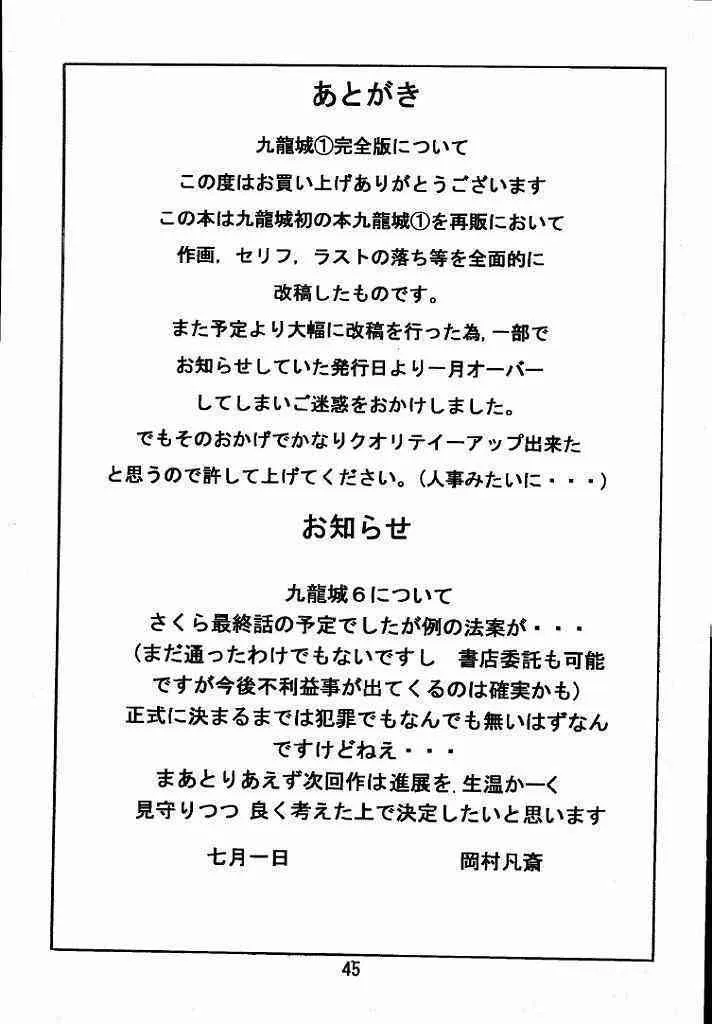 あとがき
九龍城①完全版について
この度はお買い上げありがとうございます
この本は九龍城初の本九龍城①を再販において
作画，セリフ，ラストの落ち等を全面的に
改稿したものです。
また予定より大幅に改稿を行った為，一部で
お知らせしていた発行日より一月オーバー
してしまいご迷惑をおかけしました。
でもそのおかげでかなりクオリテイーアップ出来た
と思うので許して上げてください。（人事みたいに・・・）
お知らせ
九龍城６について
さくら最終話の予定でしたが例の法案が・・・
（まだ通ったわけでもないですし　書店委託も可能
ですが今後不利益事が出てくるのは確実かも）
正式に決まるまでは犯罪でもなんでも無いはずなん
ですけどねえ・・・
まあとりあえず次回作は進展を．生温かーく
見守りつつ 良く考えた上で決定したいと思います
七月一日　岡村凡斎
45